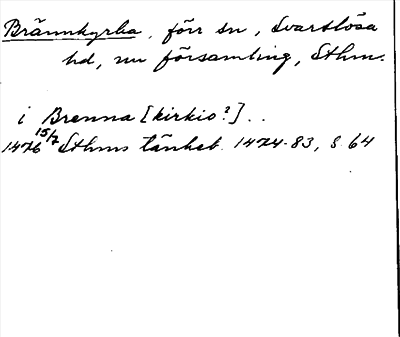 Brännkyrka, förr sn, Svartlösa
hd, nu församling, Sthm.
i Brenna [kirkio?]..
1476 15/7 Sthms tänkeb. 1474-83, s. 64